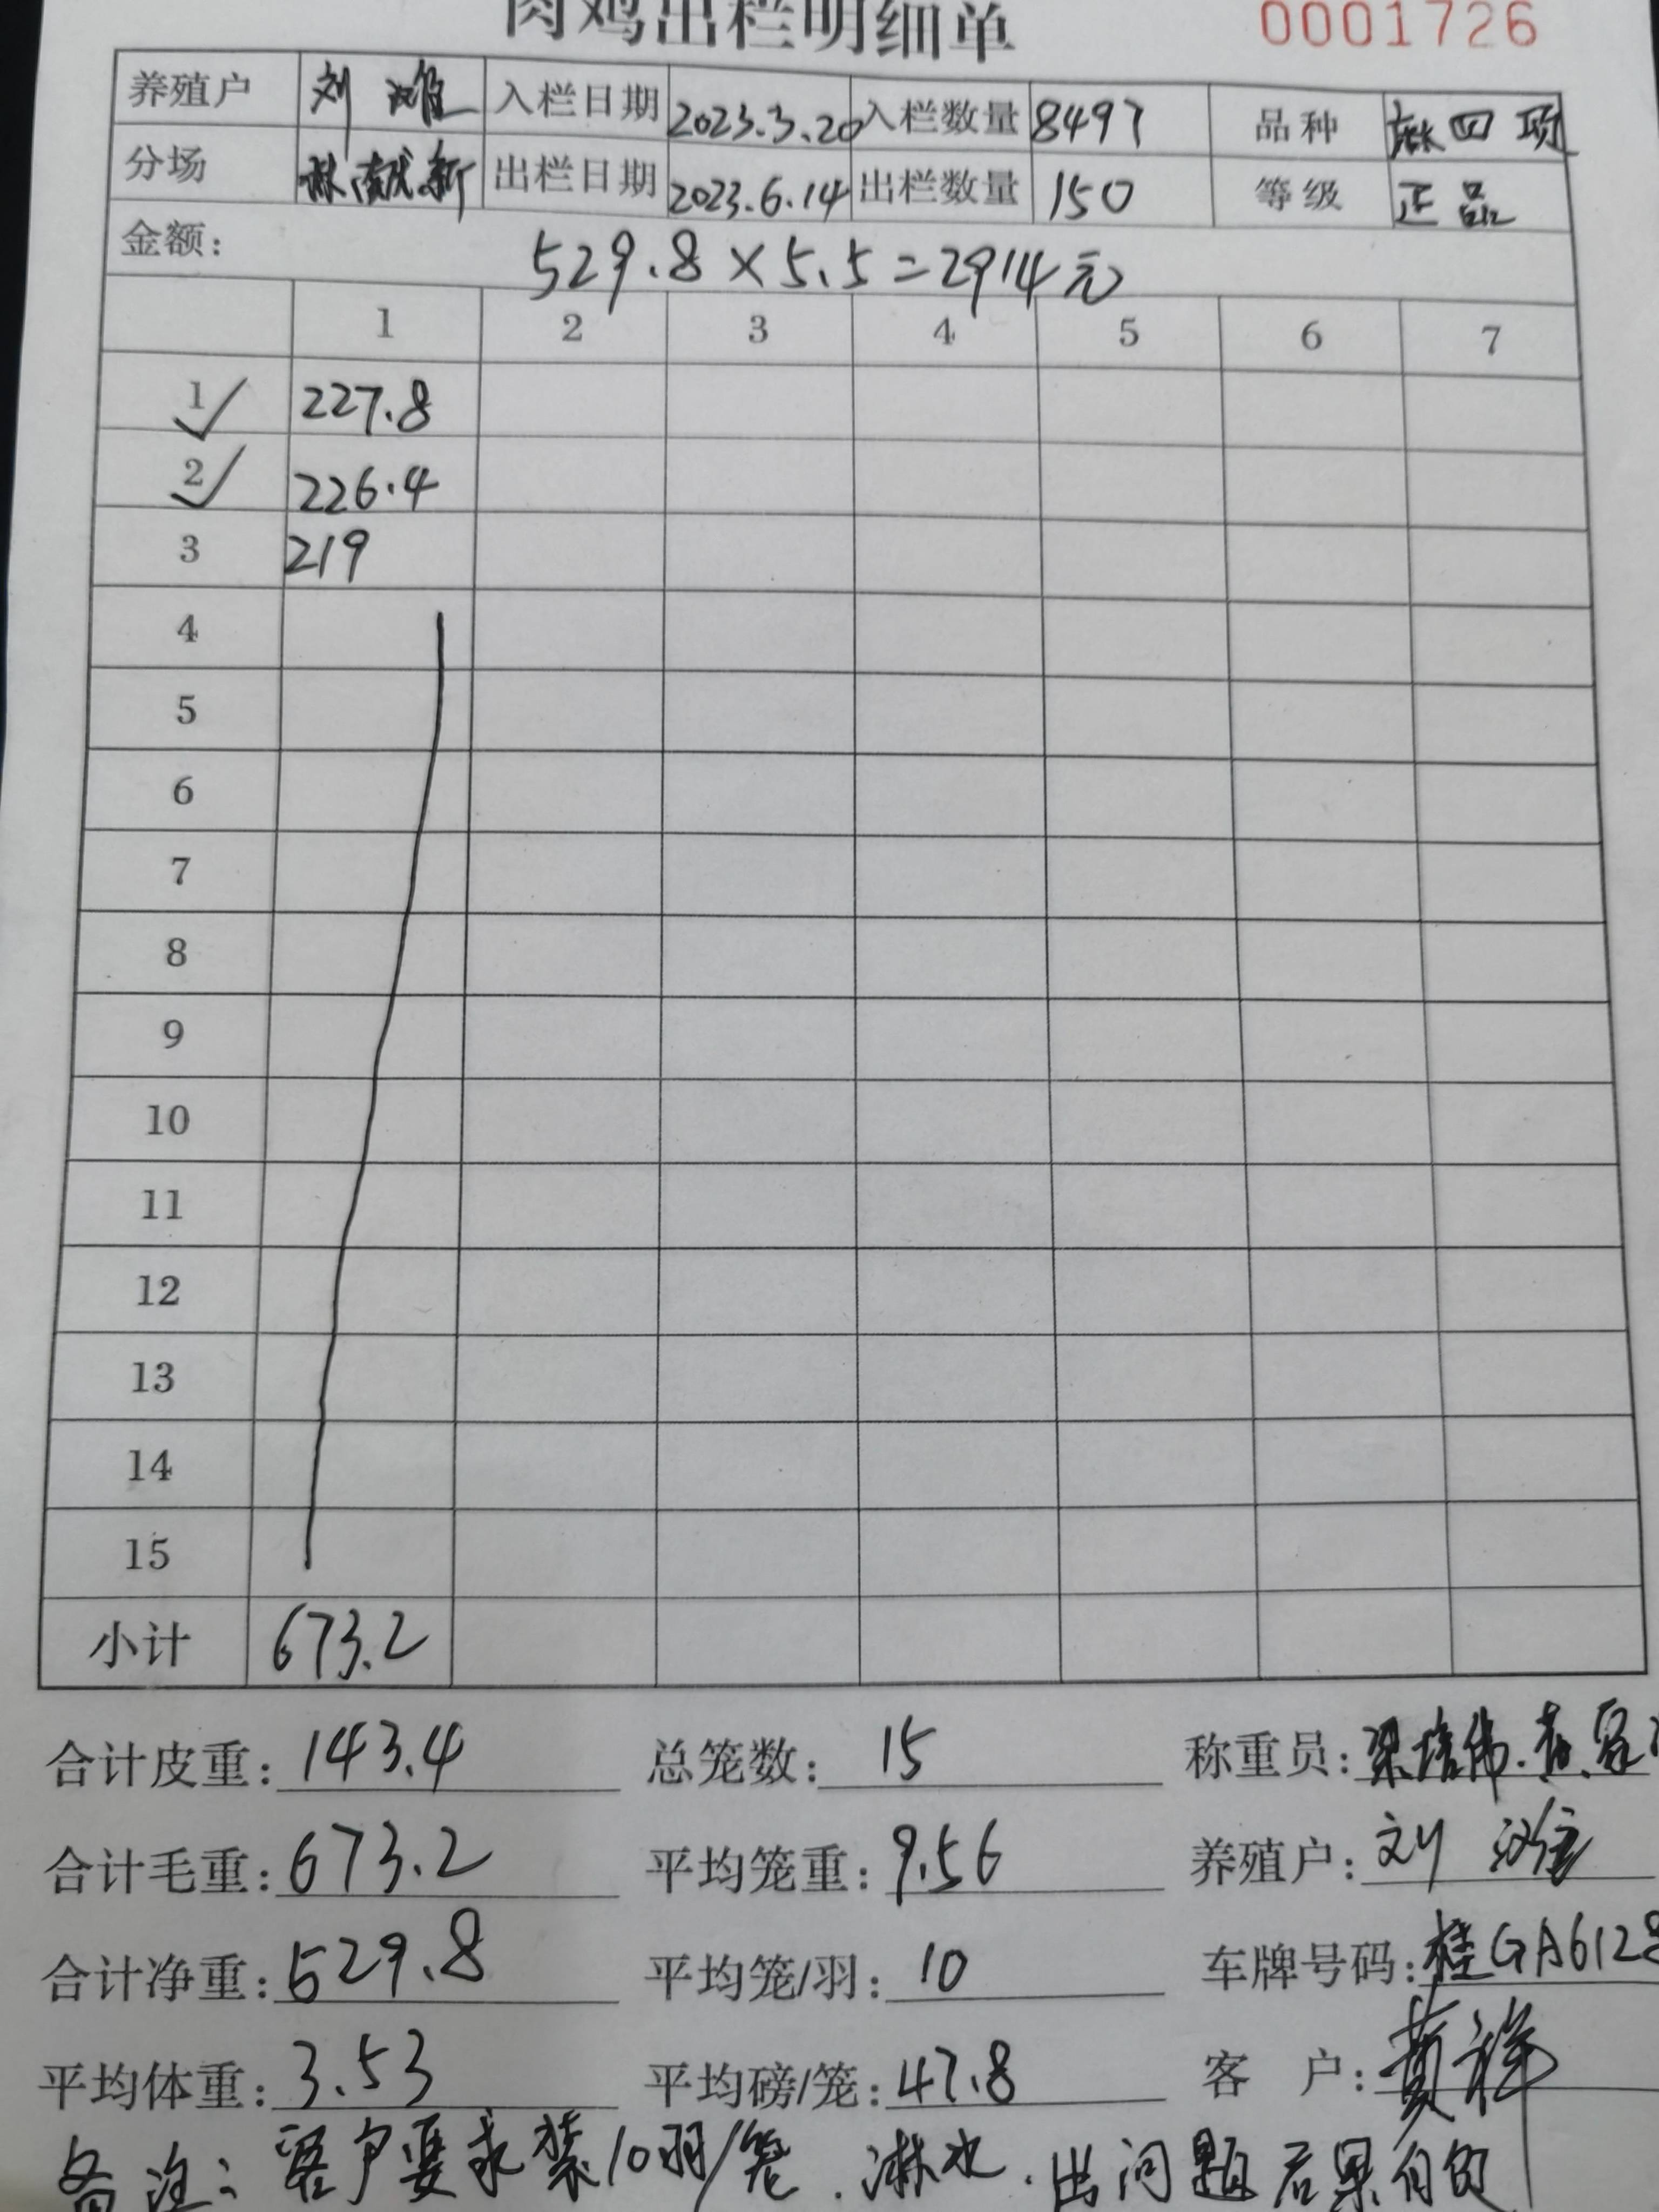 肉鸡出栏明细单 0001726
养殖户 刘 雄 入栏日期 2023.3.20 入栏数量 8497 品种 四项
分场 新 出栏日期 2023.6.14 出栏数量 150 等级 正品
金额: 529.8×5.5=2914元
1 2 3 4 5 6 7
1 227.8
2 226.4
3 219
4
5
6
7
8
9
10
11
12
13
14
15
小计 673.2
合计皮重: 143.4 总笼数: 15 称重员: 梁培伟.黄
合计毛重: 673.2 平均笼重: 9.56 养殖户: 刘
合计净重: 529.8 平均笼/羽: 10 车牌号码: 桂GA6128
平均体重: 3.53 平均磅/笼: 47.8 客 户: 黄祥
备注: 客户要求装10羽/笼.淋水.出问题后果自负